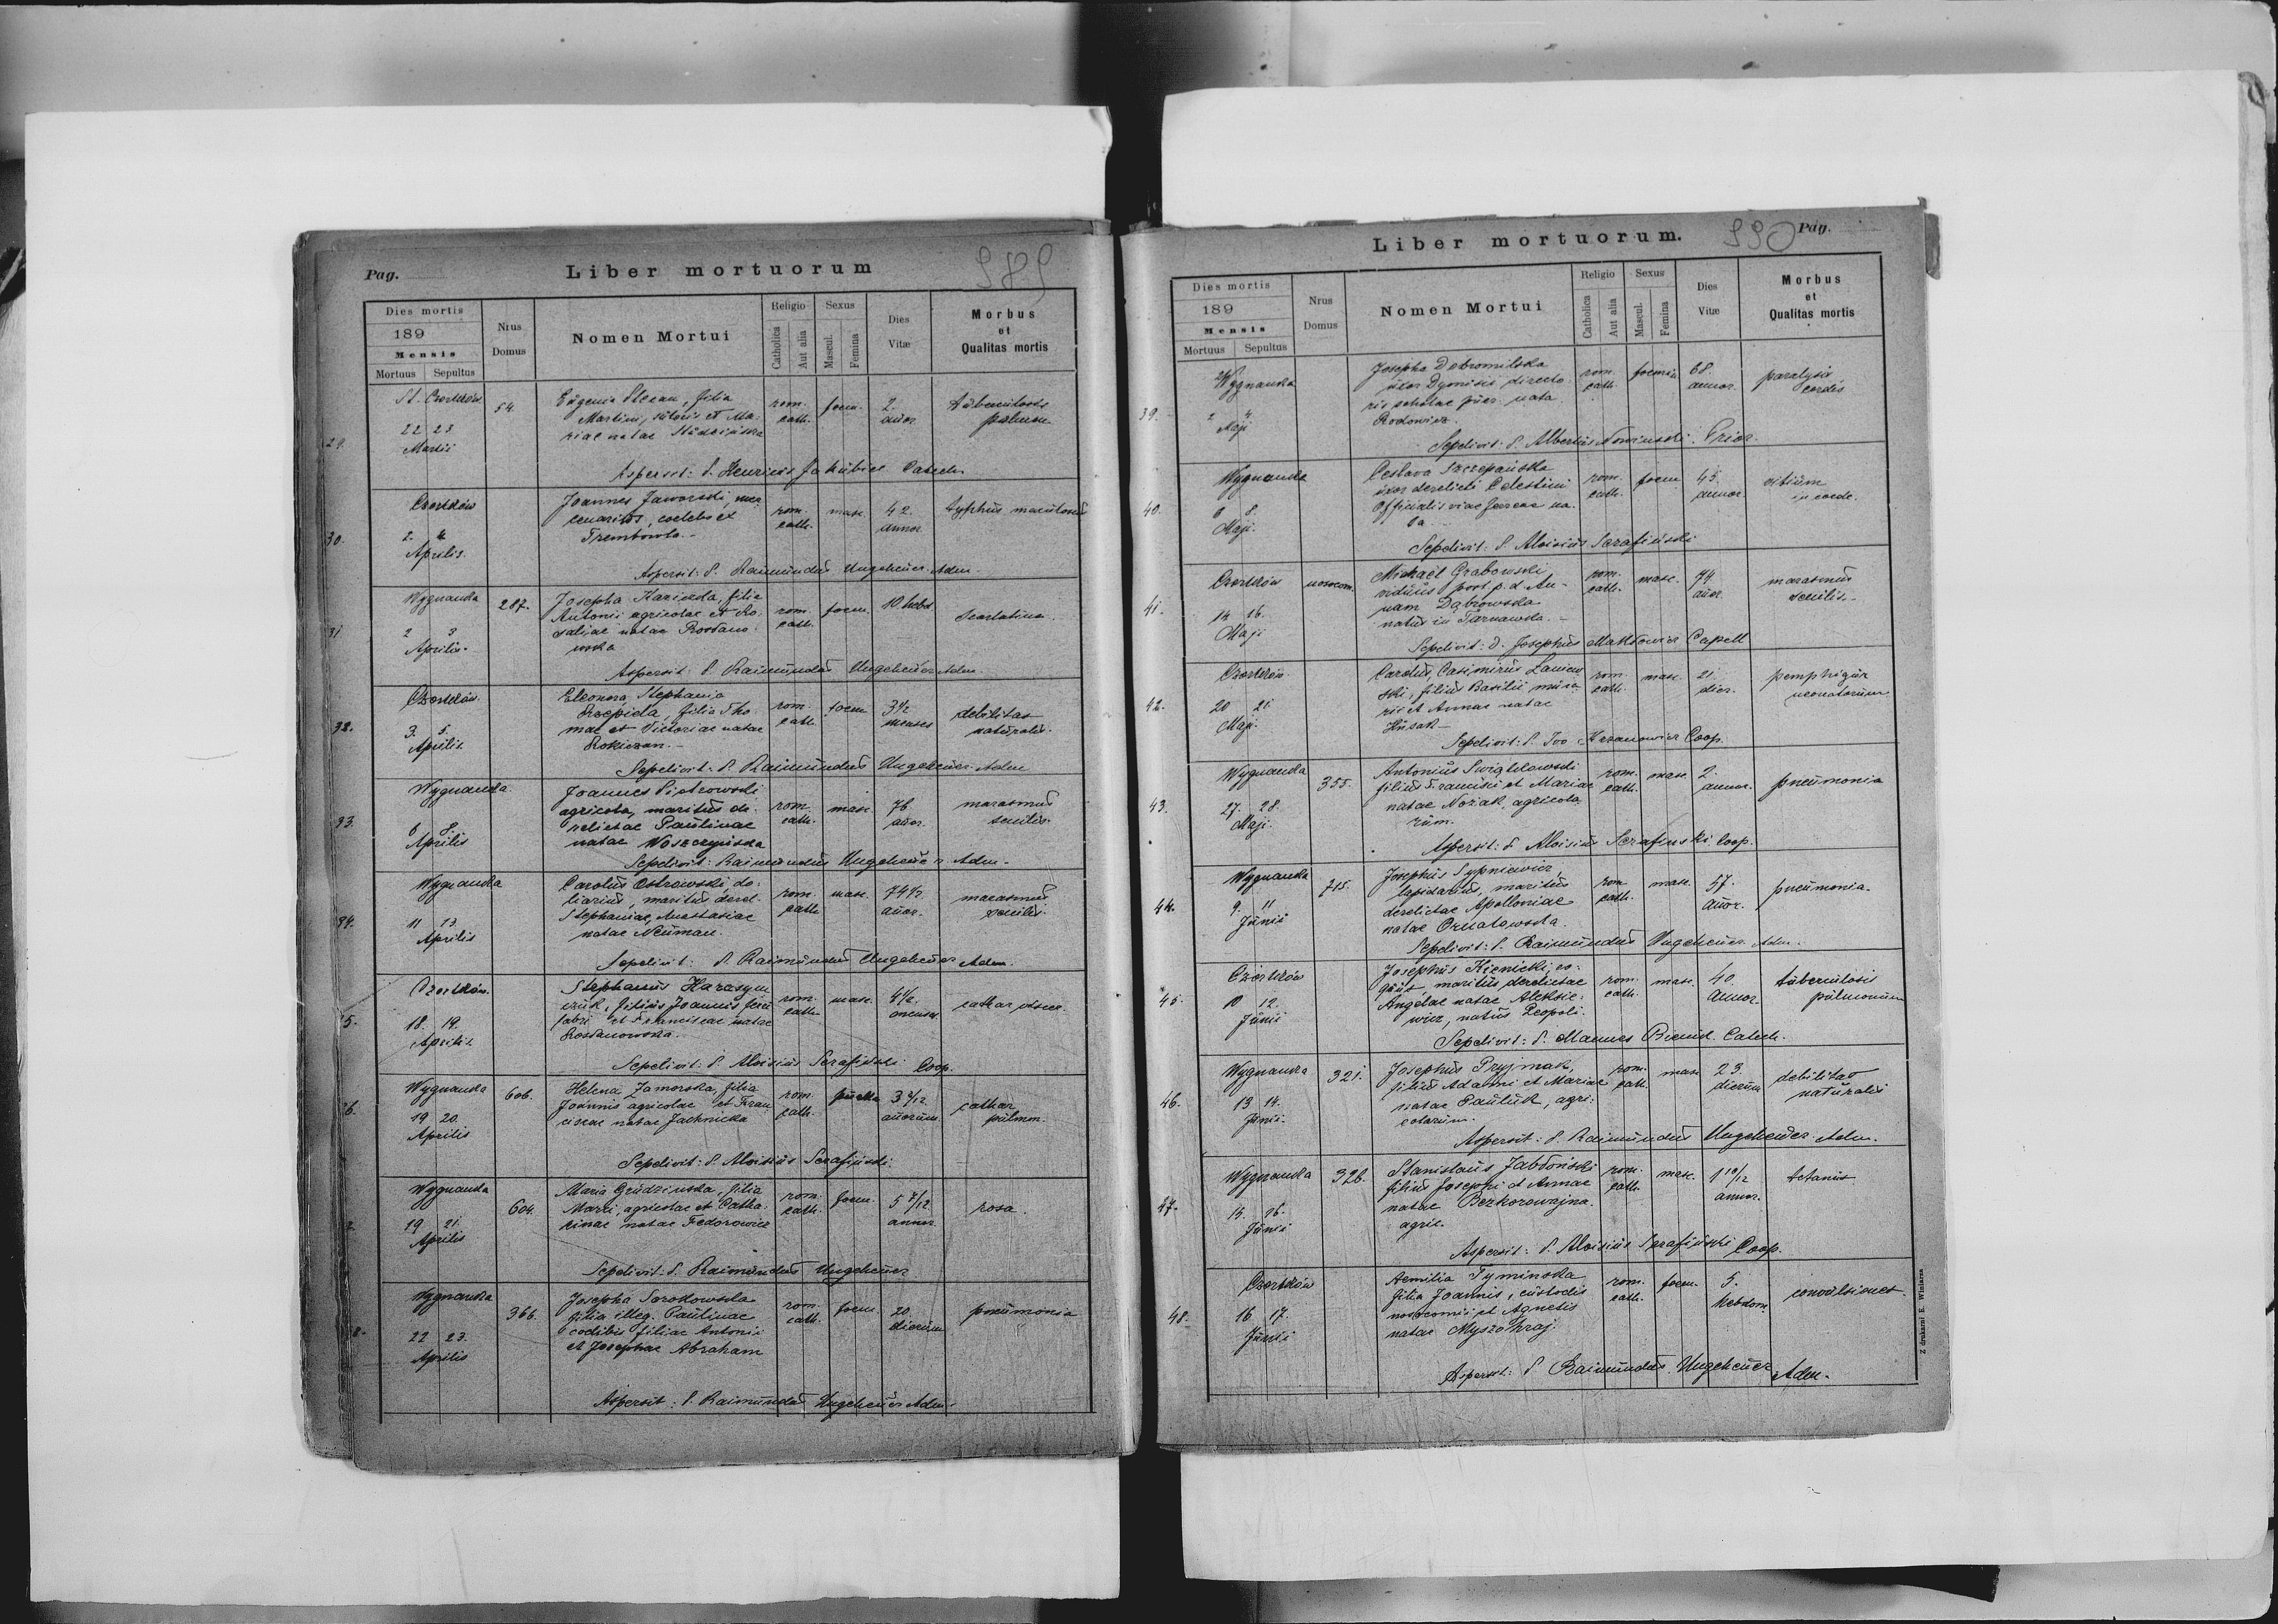 Pag.
Liber mortuorum
989
Dies mortis
189
Mensis
Mortuus Sepultus
Nrus
Domus
Nomen Mortui
Religio
Catholica
Aut alia
Sexus
Mascul.
Femina
Dies
Vitæ
Morbus
et
Qualitas mortis
29.
St. Czortków
22 23
Martii
54.
Eugenia Slezau, filia
Martini, sutoris et Ma-
riae natae Studzińska
rom.
cath.
foem.
2.
anor.
tuberculosis
pulmon.
Aspersit: P. Henricus Jakubiec Catech.
30.
Czortków
2. 4.
Aprilis
Joannes Jaworski, mer-
cenarius, coelebs et
Trembowla.-
rom.
cath.
masc.
42.
annor.
typhus
Aspersit: P. Raimundus Ungeheuer Adm.
31
Wygnanka
2 3
Aprilis.
287.
Josepha Kazieda, filia
Antonii agricolae et Ro-
saliae natae Rozdano-
wska
rom.
cath.
foem.
10 hebd.
Scarlatina.
Aspersit: P. Raimundus Ungeheuer Adm.
32.
Czortków
3. 5.
Aprilis
Eleonora Stephania
Rzepiela, filia Tho-
mae et Victoriae natae
Rokiczan.-
rom.
cath.
foem.
3 1/2
menses
debilitas
naturalis.
Sepelivit: P. Raimundus Ungeheuer Adm
33.
Wygnanka
6 8.
Aprilis
Joannes Piotrowski
agricola, maritus de-
relictae Paulinae
natae Woszczyńska
rom.
cath.
masc.
76.
anor.
marasmus
senilis.
Sepelivit: Raimundus Ungeheuer Adm.
34.
Wygnanka
11 13.
Aprilis
Carolus Ostrowski, do-
liarius, maritus derel.
Stephaniae, Anastasiae
natae Neuman.
rom.
cath.
masc.
74 1/2
anor.
marasmus
senilis.
Sepelivit: P. Raimundus Ungeheuer Adm.
5.
Czortków.
18. 19.
Aprilis
Stephanus Harasym
czuk, filius Joannis ferri
fabri et Franciscae natae
Rozdanowska.
rom.
cath.
masc.
4 1/2.
menses
cathar.
Sepelivit: P. Aloisius Serafiński Coop.
6.
Wygnanka
19 20.
Aprilis
606.
Helena Zamorska, filia
Joannis agricolae et Fran
ciscae natae Jachnicka
rom.
cath.
puella
annorum
cathar
pulmon.
Sepelivit: P. Aloisius Serafiński
Wygnanka
19 21.
Aprilis
604.
Maria Grudzinska, filia
Marci, agricolae et Catha-
rinae natae Fedorowicz
rom.
cath.
foem.
5 7/12
annor.
rosa.
Sepelivit: P. Raimundus Ungeheuer
8.
Wygnanka
22 23.
Aprilis
366.
Josepha Sorokowska
filia illeg. Paulinae
coelibis filiae Antonii
et Josephae Abraham
rom.
cath.
foem.
20
dierum
pneumonia
Aspersit: P. Raimundus Ungeheuer Adm.
Liber mortuorum.
990
Pag.
Dies mortis
189
Mensis
Mortuus Sepultus
Nrus
Domus
Nomen Mortui
Religio
Catholica
Aut alia
Sexus
Mascul.
Femina
Dies
Vitæ
Morbus
et
Qualitas mortis
39.
Wygnanka
2 4
Maji
Josepha Dobromilska
uxor Dyonisii directo-
ris scholae puer. nata
Rodowicz.
rom.
cath.
foemin.
68.
annor.
paralysis
cordis
Sepelivit: P. Albertus Nowinski. Prior.
40.
Wygnanka
6 8.
Maji.
Ceslava Szczepańska
uxor derelicti Celestini
Officialis viae ferreae na-
ta
rom.
cath.
foem.
45.
annor.
vitium
in corde.
Sepelivit: P. Aloisius Serafiński
41.
Czortków
14 16.
Maji
nosocom.
Michaël Grabowski
viduus post p.d. An-
nam Dąbrowska
natus in Tarnawka.-
rom.
cath.
masc.
74
anor.
marasmus
senilis.-
Sepelivit: D. Josephus Capell
42.
Czortków.
20 21.
Maji.
Carolus Casimirus Laniew
ski, filius Basilii mura-
rii et Annae natae
Husak-
rom.
cath.
masc.
21.
dier.
pemphigus
neonatorum.
Sepelivit: P. Ivo Coop.
43.
Wygnanka
27. 28.
Maji.
355.
Antonius Swigtelowski
filius Francisci et Mariae
natae Nożak, agricola-
rum.
rom.
cath.
masc.
2.
annor.
pneumonia
Aspersit: P. Aloisius Serafinski Coop.
44.
Wygnanka
9. 11
Junii
715.
Josephus Sypniewicz
lapidarius, maritus
derelictae Apolloniae
natae Ornatowska.
rom.
cath.
masc.
57.
anor.
pneumonia.
Sepelivit: P. Raimundus Ungeheuer Adm.
45.
Czortków
10 12.
Junii
Josephus Kienicki, co-
quus, maritus derelictae
Angelae natae Aleksie-
wicz, natus Leopoli.
rom.
cath.
masc.
40.
annor.
tuberculosis
pulmonum
Sepelivit: P. Mannes Catech.
46.
Wygnanka
13 14.
Junii.
321.
Josephus Pryjmak,
filius Adami et Mariae
natae Pauluk, agri-
colarum.
rom.
cath.
masc
23.
dierum
debilitas
naturalis
Aspersit: P. Raimundus Ungeheuer Adm.
47.
Wygnanka
15. 16.
Junii
326.
Stanislaus Jabłoński
filius Josephi et Annae
natae Bezkorowajna.
agric.
rom.
cath.
masc.
1 10/12
annor.
tetanus
Aspersit: P. Aloisius Serafiński Coop.
48.
Czortków
16 17.
Junii
Aemilia Tyminska
filia Joannis, custodis
nosocomii et Agnetis
natae Myszohraj.
rom.
cath.
foem.
5.
hebdom.
convulsiones.
Aspersit: P. Raimundus Ungeheuer, Adm.
Z drukarni E. Winiarza